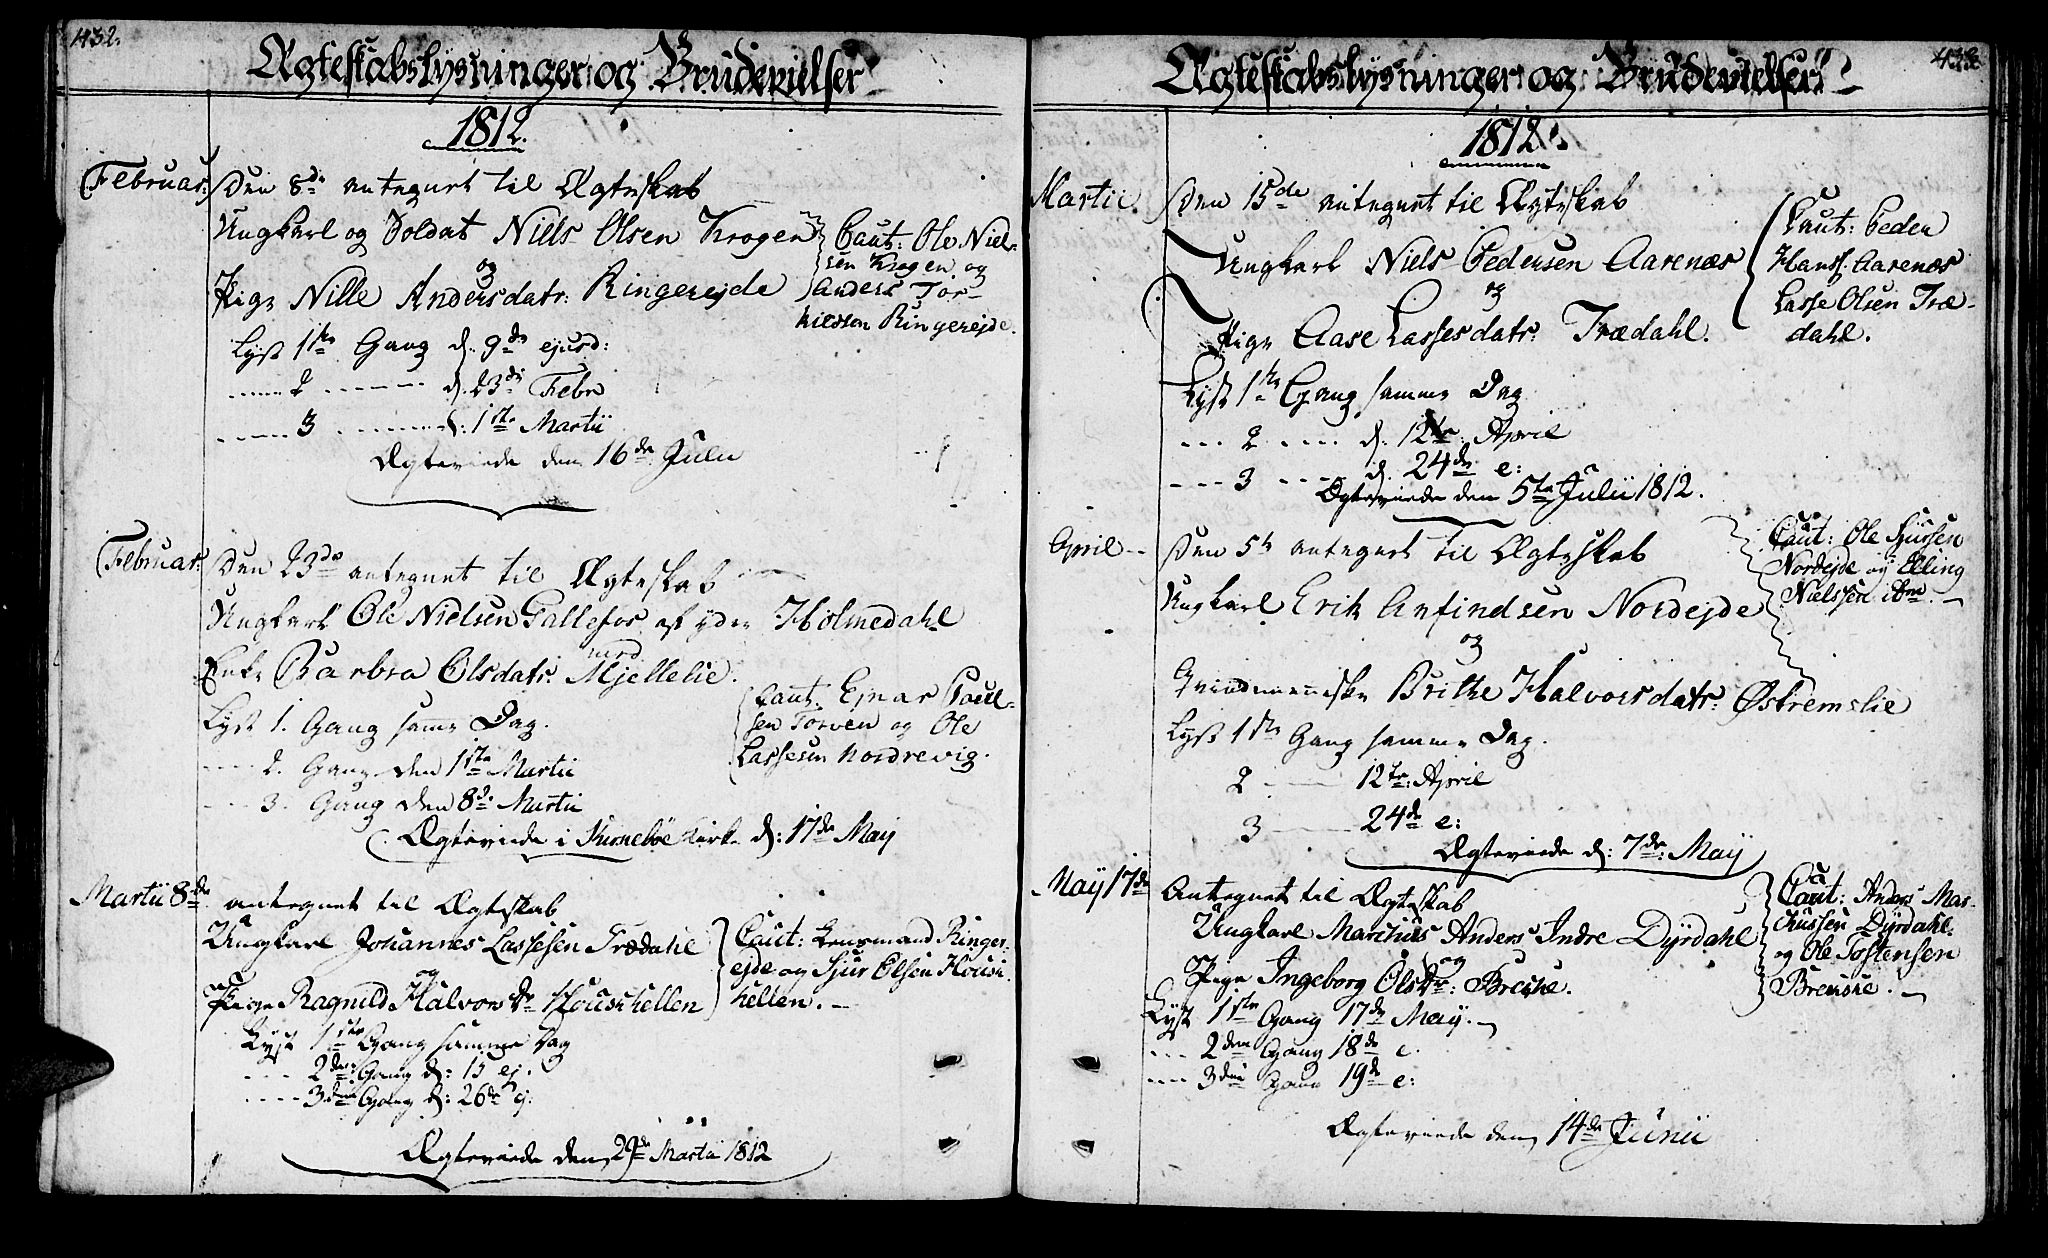 432.
Ægteskabslysninger og Brudevielser
1812.
Februar: Den 8de antegnet til Ægteskab
Ungkarl og Soldat Niels Olsen Krogen
og
Pige Nille Andersdatr: Ringerejde
Caut: Ole Niel-
sen Krogen og
Anders Tor-
kildsen Ringerejde.
Lyst 1ste Gang d. 9de ejusd:
2 d. 23de Febr
3 d: 1ste Martii
Ægteviede den 16de Julii
Februar: Den 23de antegnet til Ægteskab
Ungkarl Ole Nielsen Tallefos af ydre Holmedahl
med
Enke Barbra Olsdatr. Mjellelie.
Caut. Ejnar Poul-
sen Torven og Ole
Lassesen Nordrevig.
Lyst 1. Gang samme Dag.
2. Gang den 1ste Martii
3. Gang den 8de Martii
Ægteviede i Kirke d: 17de Maij
Martii 8de antegnet til Ægteskab
Ungkarl Johannes Lassesen Trædahl
og
Pige Ragnild Halvors Dr Househellen
Caut: Lensmand Ringer-
ejde og Sjur Olsen House
hellen.
Lyst 1ste Gang samme Dag
2den Gang d: 15 ej.
3die Gang d: 26de ej.
Ægteviede den 29de Martii 1812
433
Ægteskabslysninger og Brudevielser
1812
Martii. Den 15de antegnet til Ægteskab
Ungkarl Niels Pedersen Aarenæs
og
Pige Aase Lassesdatr: Trædahl.
Caut: Peder
Hanss. Aarenæs
Lasse Olsen Træ-
dahl.
Lyst 1ste Gang samme Dag
2 d. 12te April
3 d. 24de e:
Ægteviede den 5te Julii 1812.
April Den 5te antegnet til Ægteskab
Ungkarl Erik Anfindsen Nordejde
og
Qvindemenniske Brithe Halvorsdatr: Østremslie
Caut: Ole Sjurssen
Nordejde og Elling
Nielssen ibm
Lyst 1ste Gang samme Dag.
2 12te: April
3 24de e:
Ægteviede d: 7de: Maij
Maij 17de Antegnet til Ægteskab
Ungkarl Marchus Anders Indre Dyrdahl
og
Pige Ingeborg Olsdr: Breche.
Caut: Anders Mar-
kussen Dyrdahl
og Ole Tostensen
Lyst 1ste Gang 17de Maij.
2den Gang 18de e.
3die Gang 19de e:
Ægteviede den 14de Junii